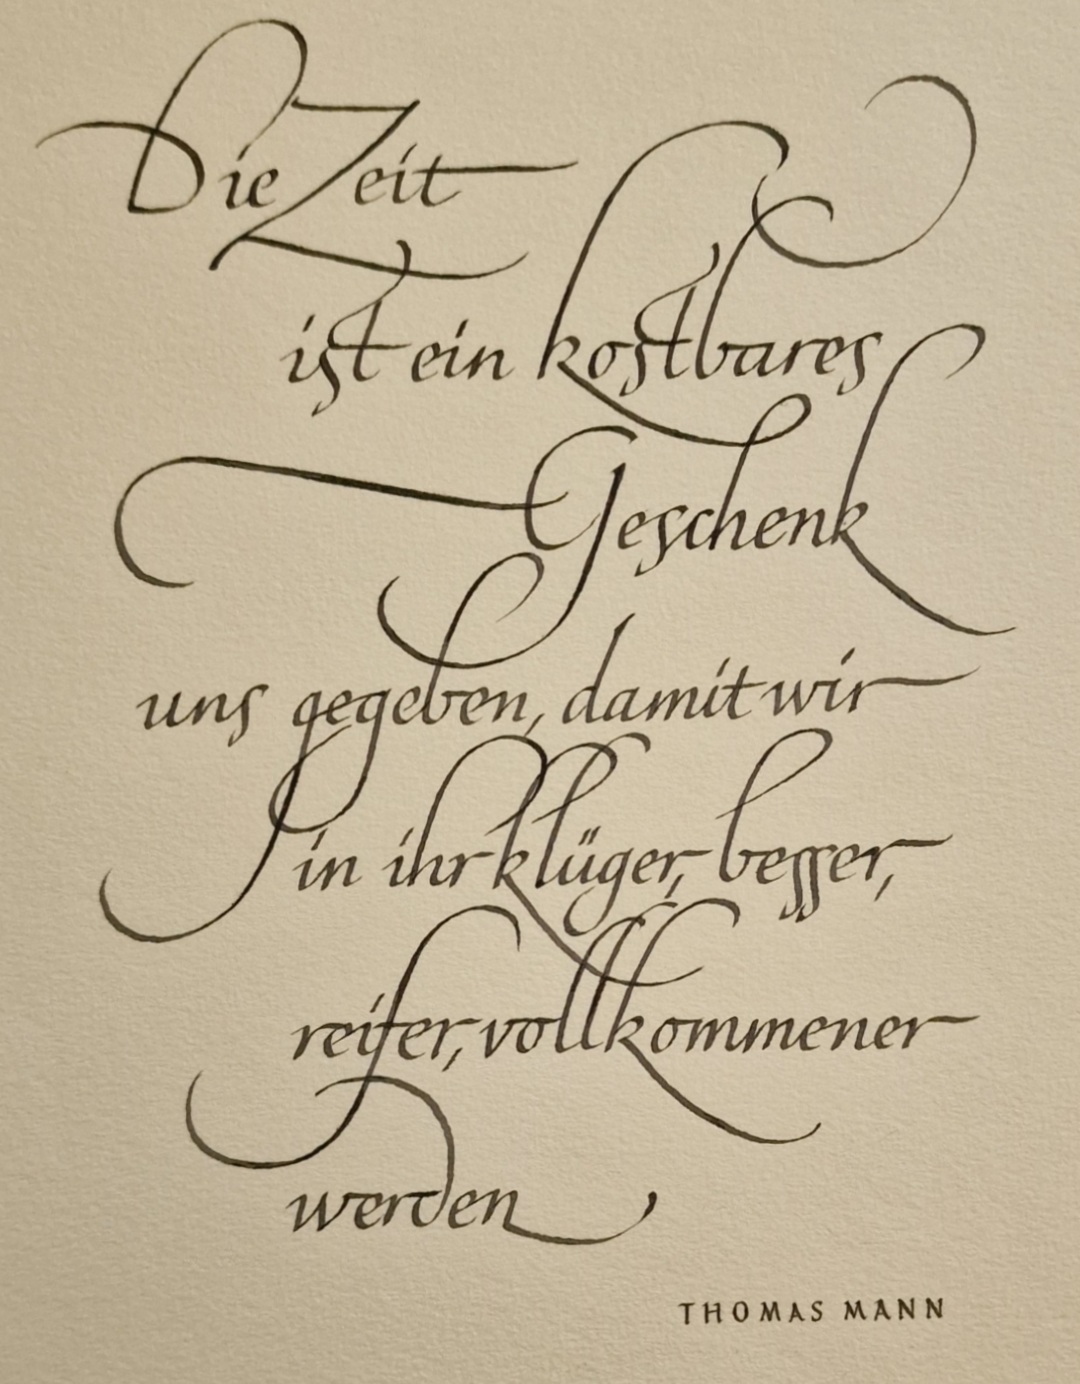 Die Zeit
ist ein kostbares
Geschenk
uns gegeben, damit wir
in ihr klüger, besser,
reifer, vollkommener
werden
THOMAS MANN